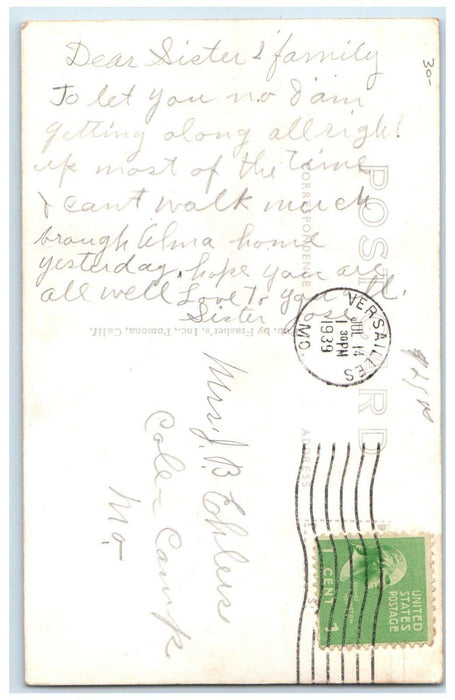 Dear Sister & family
To let you no I am
getting along allright
up most of the time
I cant walk much
brough Alma home
yesterday. hope you are
all well Love To you all.
Sister Rose
POST CARD
CORRESPONDENCE
ADDRESS
by Frasher's, Inc., Pomona, Calif.
30-
VERSAILLES
JUL 14
1 30PM
1939
MO.
Mrs. J. B. Ehlers
Cole-Camp
Mo-
UNITED
STATES
POSTAGE
1 CENT 1